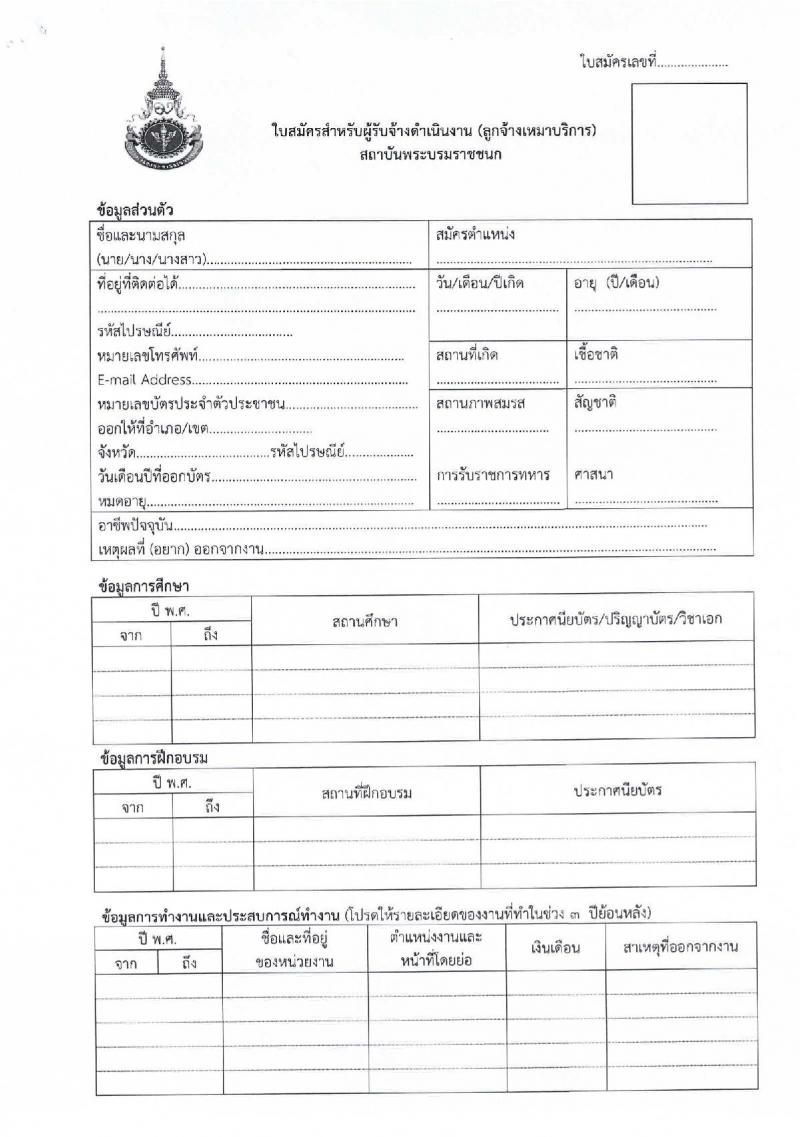 ใบสมัครเลขที่....................
ใบสมัครสำหรับผู้รับจ้างดำเนินงาน (ลูกจ้างเหมาบริการ)
สถาบันพระบรมราชชนก
ข้อมูลส่วนตัว
ชื่อและนามสกุล
(นาย/นาง/นางสาว)....................
สมัครตำแหน่ง
....................
ที่อยู่ที่ติดต่อได้....................
....................
รหัสไปรษณีย์....................
หมายเลขโทรศัพท์....................
E-mail Address....................
หมายเลขบัตรประจำตัวประชาชน....................
ออกให้ที่อำเภอ/เขต....................
จังหวัด....................รหัสไปรษณีย์....................
วันเดือนปีที่ออกบัตร....................
หมดอายุ....................
วัน/เดือน/ปีเกิด
....................
อายุ (ปี/เดือน)
....................
สถานที่เกิด
....................
เชื้อชาติ
....................
สถานภาพสมรส
....................
สัญชาติ
....................
การรับราชการทหาร
....................
ศาสนา
....................
อาชีพปัจจุบัน....................
เหตุผลที่ (อยาก) ออกจากงาน....................
ข้อมูลการศึกษา
ปี พ.ศ.
จาก ถึง
สถานศึกษา
ประกาศนียบัตร/ปริญญาบัตร/วิชาเอก
ข้อมูลการฝึกอบรม
ปี พ.ศ.
จาก ถึง
สถานที่ฝึกอบรม
ประกาศนียบัตร
ข้อมูลการทำงานและประสบการณ์ทำงาน (โปรดให้รายละเอียดของงานที่ทำในช่วง ๓ ปีย้อนหลัง)
ปี พ.ศ.
จาก ถึง
ชื่อและที่อยู่
ของหน่วยงาน
ตำแหน่งงานและ
หน้าที่โดยย่อ
เงินเดือน
สาเหตุที่ออกจากงาน